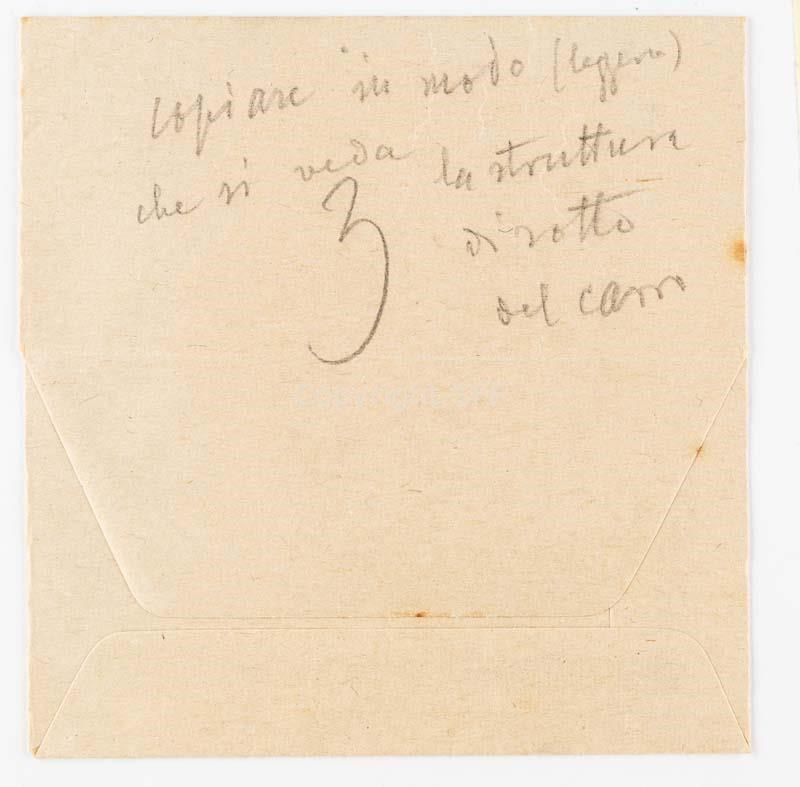 copiare in modo (leggero)
che si veda la struttura
di sotto
del carro
3